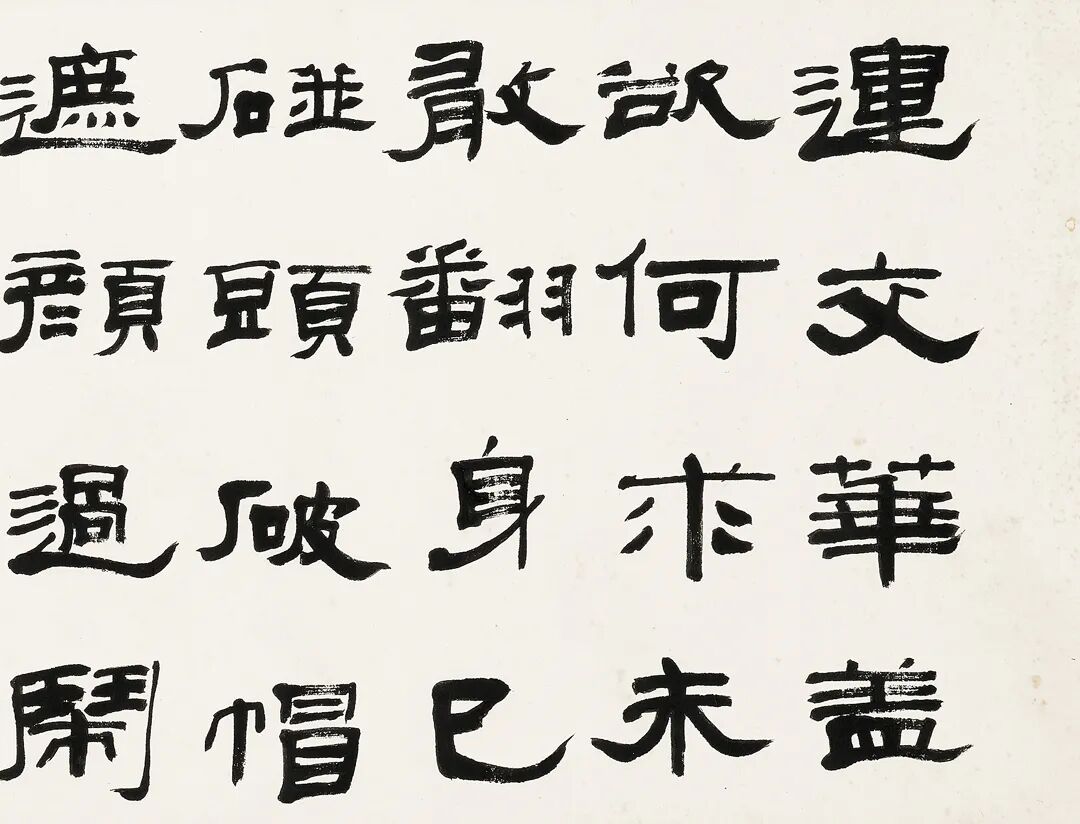 運交華盖
欲何求未
敢翻身已
碰頭破帽
遮顔過鬧